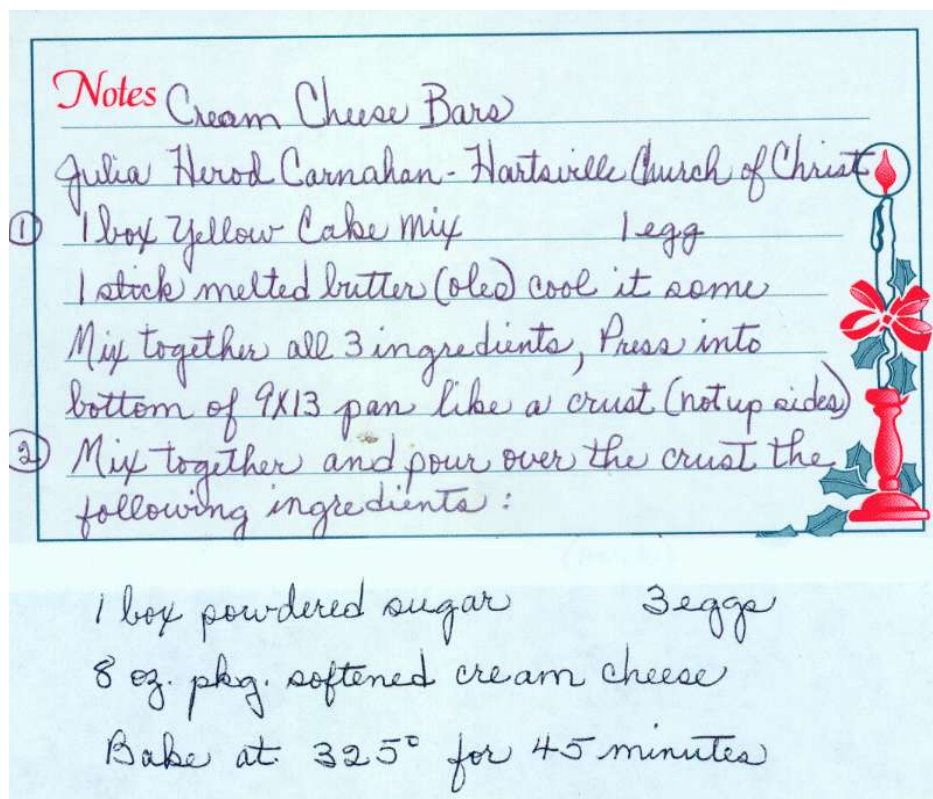 Notes Cream Cheese Bars
Julia Herod Carnahan - Hartsville Church of Christ
① 1 box Yellow Cake Mix 1 egg
1 stick melted butter (oleo) cool it some
Mix together all 3 ingredients, Press into
bottom of 9X13 pan like a crust (not up sides)
② Mix together and pour over the crust the
following ingredients:
1 box powdered sugar 3 eggs
8 oz. pkg. softened cream cheese
Bake at 325° for 45 minutes